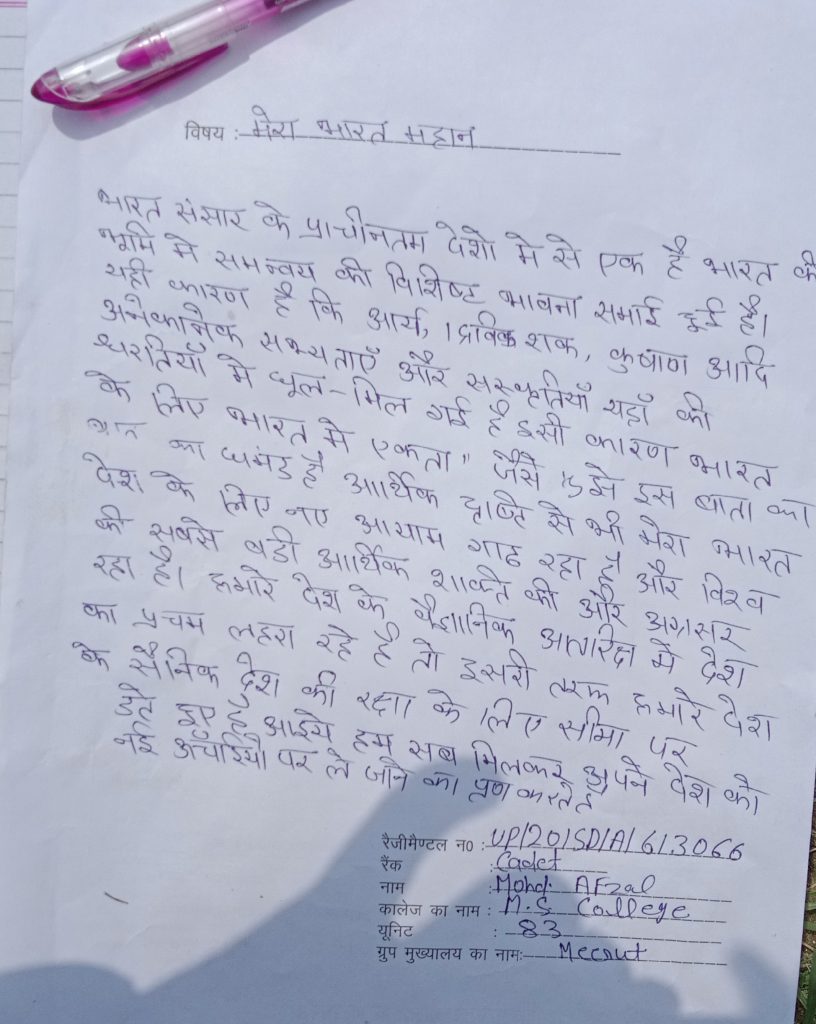 विषय : मेरा भारत महान
भारत संसार के प्राचीनतम देशो मे से एक है भारत की
भूमि मे समन्वय की विशिष्ट भावना समाई हुई है।
यही कारण है कि आर्य, द्रविक शक, कुषाण आदि
अनेकानेक सभ्यताएँ और सस्कृतियाँ यहाँ की
धरतियाँ मे धूल-मिल गई है इसी कारण भारत
के लिए भारत मे एकता" जैसे इस बाता का
का घमंड है आर्थिक दृष्टि से भी मेरा भारत
देश के लिए नए आयाम गाढ रहा है और विश्व
की सबसे बडी आर्थिक शक्ति की और अग्रसर
रहा है। हमारे देश के वैज्ञानिक अतरिक्ष मे देश
का प्रचम लहरा रहे है तो इसरी तरफ हमारे देश
के सैनिक देश की रक्षा के लिए सीमा पर
डटे हुए है आइये हम सब मिलकर अपने देश को
नई ऊँचाइयो पर ले जाने का प्रण करते है
रैजीमैण्टल न० : UP/20/SD/A/613066
रैंक : Cadet
नाम : Mohd. AFzal
कालेज का नाम : M.S College
यूनिट : 83
ग्रुप मुख्यालय का नाम:- Meerut